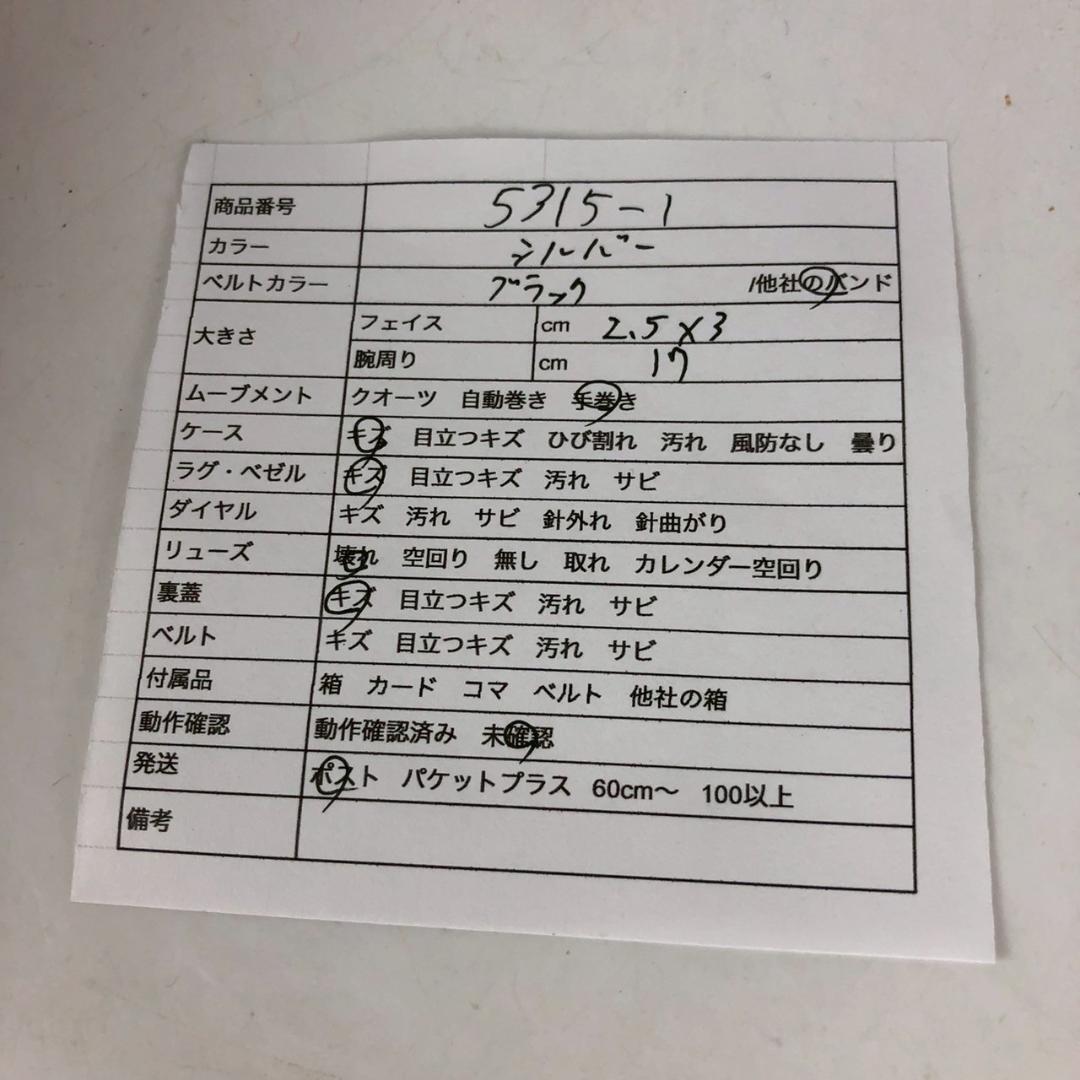 商品番号 5315-1
カラー シルバー
ベルトカラー ブラック /他社のバンド
大きさ フェイス cm 2.5×3
腕周り cm 17
ムーブメント クオーツ 自動巻き 手巻き
ケース キズ 目立つキズ ひび割れ 汚れ 風防なし 曇り
ラグ・ベゼル キズ 目立つキズ 汚れ サビ
ダイヤル キズ 汚れ サビ 針外れ 針曲がり
リューズ 壊れ 空回り 無し 取れ カレンダー空回り
裏蓋 キズ 目立つキズ 汚れ サビ
ベルト キズ 目立つキズ 汚れ サビ
付属品 箱 カード コマ ベルト 他社の箱
動作確認 動作確認済み 未確認
発送 ポスト パケットプラス 60cm〜 100以上
備考